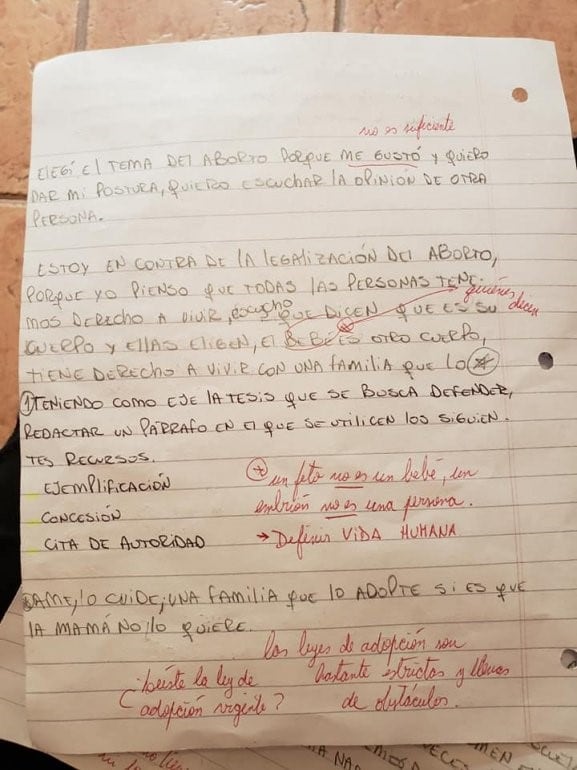 no es suficiente
ELEGÍ EL TEMA DEL ABORTO PORQUE ME GUSTÓ Y QUIERO
DAR MI POSTURA, QUIERO ESCUCHAR LA OPINIÓN DE OTRA
PERSONA.
ESTOY EN CONTRA DE LA LEGALIZACIÓN DEL ABORTO,
PORQUE YO PIENSO QUE TODAS LAS PERSONAS TENE-
MOS DERECHO A VIVIR, escucho QUE DICEN QUE ES SU
quienes dicen
CUERPO Y ELLAS ELIGEN, EL BEBÉ ES OTRO CUERPO,
TIENE DERECHO A VIVIR CON UNA FAMILIA QUE LO
① TENIENDO COMO EJE LA TESIS QUE SE BUSCA DEFENDER,
REDACTAR UN PÁRRAFO EN EL QUE SE UTILICEN LOS SIGUIEN-
TES RECURSOS.
EJEMPLIFICACIÓN
CONCESIÓN
CITA DE AUTORIDAD
un feto no es un bebé, un
embrión no es una persona.
→ Definir VIDA HUMANA
AME, LO CUIDE, UNA FAMILIA QUE LO ADOPTE SI ES QUE
LA MAMÁ NO LO QUIERE.
las leyes de adopción son
bastante estrictas y llenas
de obstáculos.
¿leíste la ley de
adopción vigente?